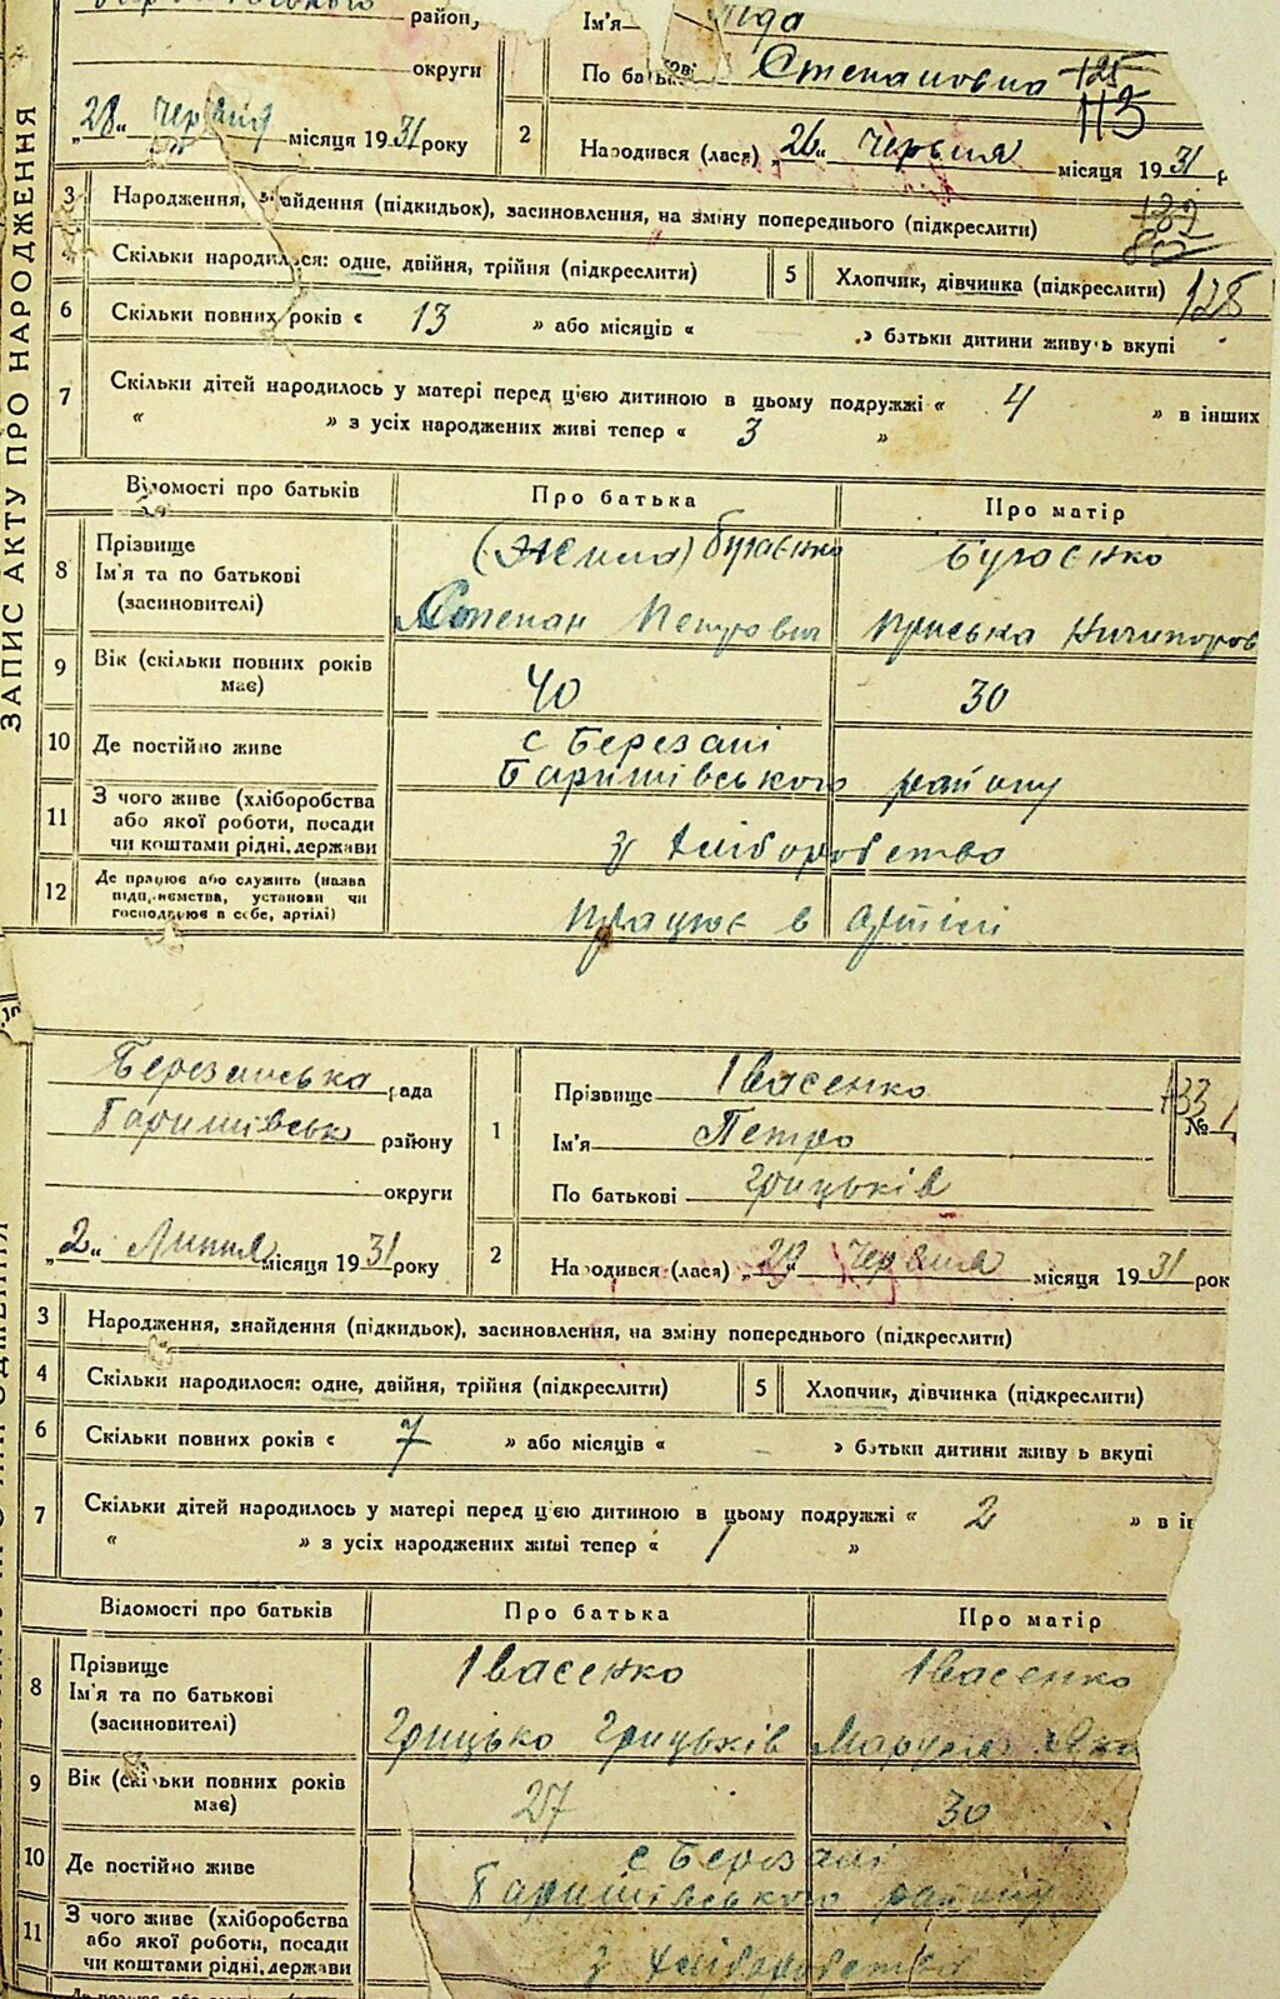 район,
округи
„28“ червня місяця 1931 року
Ім'я
По батькові Степановна 125
113
2 Народився (лася) „26“ червня місяця 1931 р
ЗАПИС АКТУ ПРО НАРОДЖЕННЯ
3 Народження, знайдення (підкидьок), засиновлення, на зміну попереднього (підкреслити)
4 Скільки народилося: одне, двійня, трійня (підкреслити) 5 Хлопчик, дівчинка (підкреслити) 128
6 Скільки повних років « 13 » або місяців « » батьки дитини живуть вкупі
7 Скільки дітей народилось у матері перед цією дитиною в цьому подружжі « 4 » в інших
« » з усіх народжених живі тепер « 3 »
Відомості про батьків Про батька Про матір
8 Прізвище Бугаєнко Бугаєнко
Ім'я та по батькові Степан Петрович Приська Ничипоров
(засиновителі)
9 Вік (скільки повних років має) 40 30
10 Де постійно живе с Березані
Баришівського району
11 З чого живе (хліборобства
або якої роботи, посади
чи коштами рідні, держави з хліборобства
12 Де працює або служить (назва
підприємства, установи чи
господарює в себе, артілі) працює в артілі
Березанська рада
Баришівськ району
округи
„2“ Липня місяця 1931 року
1 Прізвище Івасенко 133 №
Ім'я Петро
По батькові Грицьків
2 Народився (лася) „29“ Червня місяця 1931 рок
3 Народження, знайдення (підкидьок), засиновлення, на зміну попереднього (підкреслити)
4 Скільки народилося: одне, двійня, трійня (підкреслити) 5 Хлопчик, дівчинка (підкреслити)
6 Скільки повних років « 7 » або місяців « – » батьки дитини живуть вкупі
7 Скільки дітей народилось у матері перед цією дитиною в цьому подружжі « 2 » в ін
« » з усіх народжених живі тепер « 1 »
Відомості про батьків Про батька Про матір
8 Прізвище Івасенко Івасенко
Ім'я та по батькові Грицько Грицьків Маруся
(засиновителі)
9 Вік (скільки повних років має) 27 30
10 Де постійно живе с Березані
Баришівського району
11 З чого живе (хліборобства
або якої роботи, посади
чи коштами рідні, держави з хліборобства